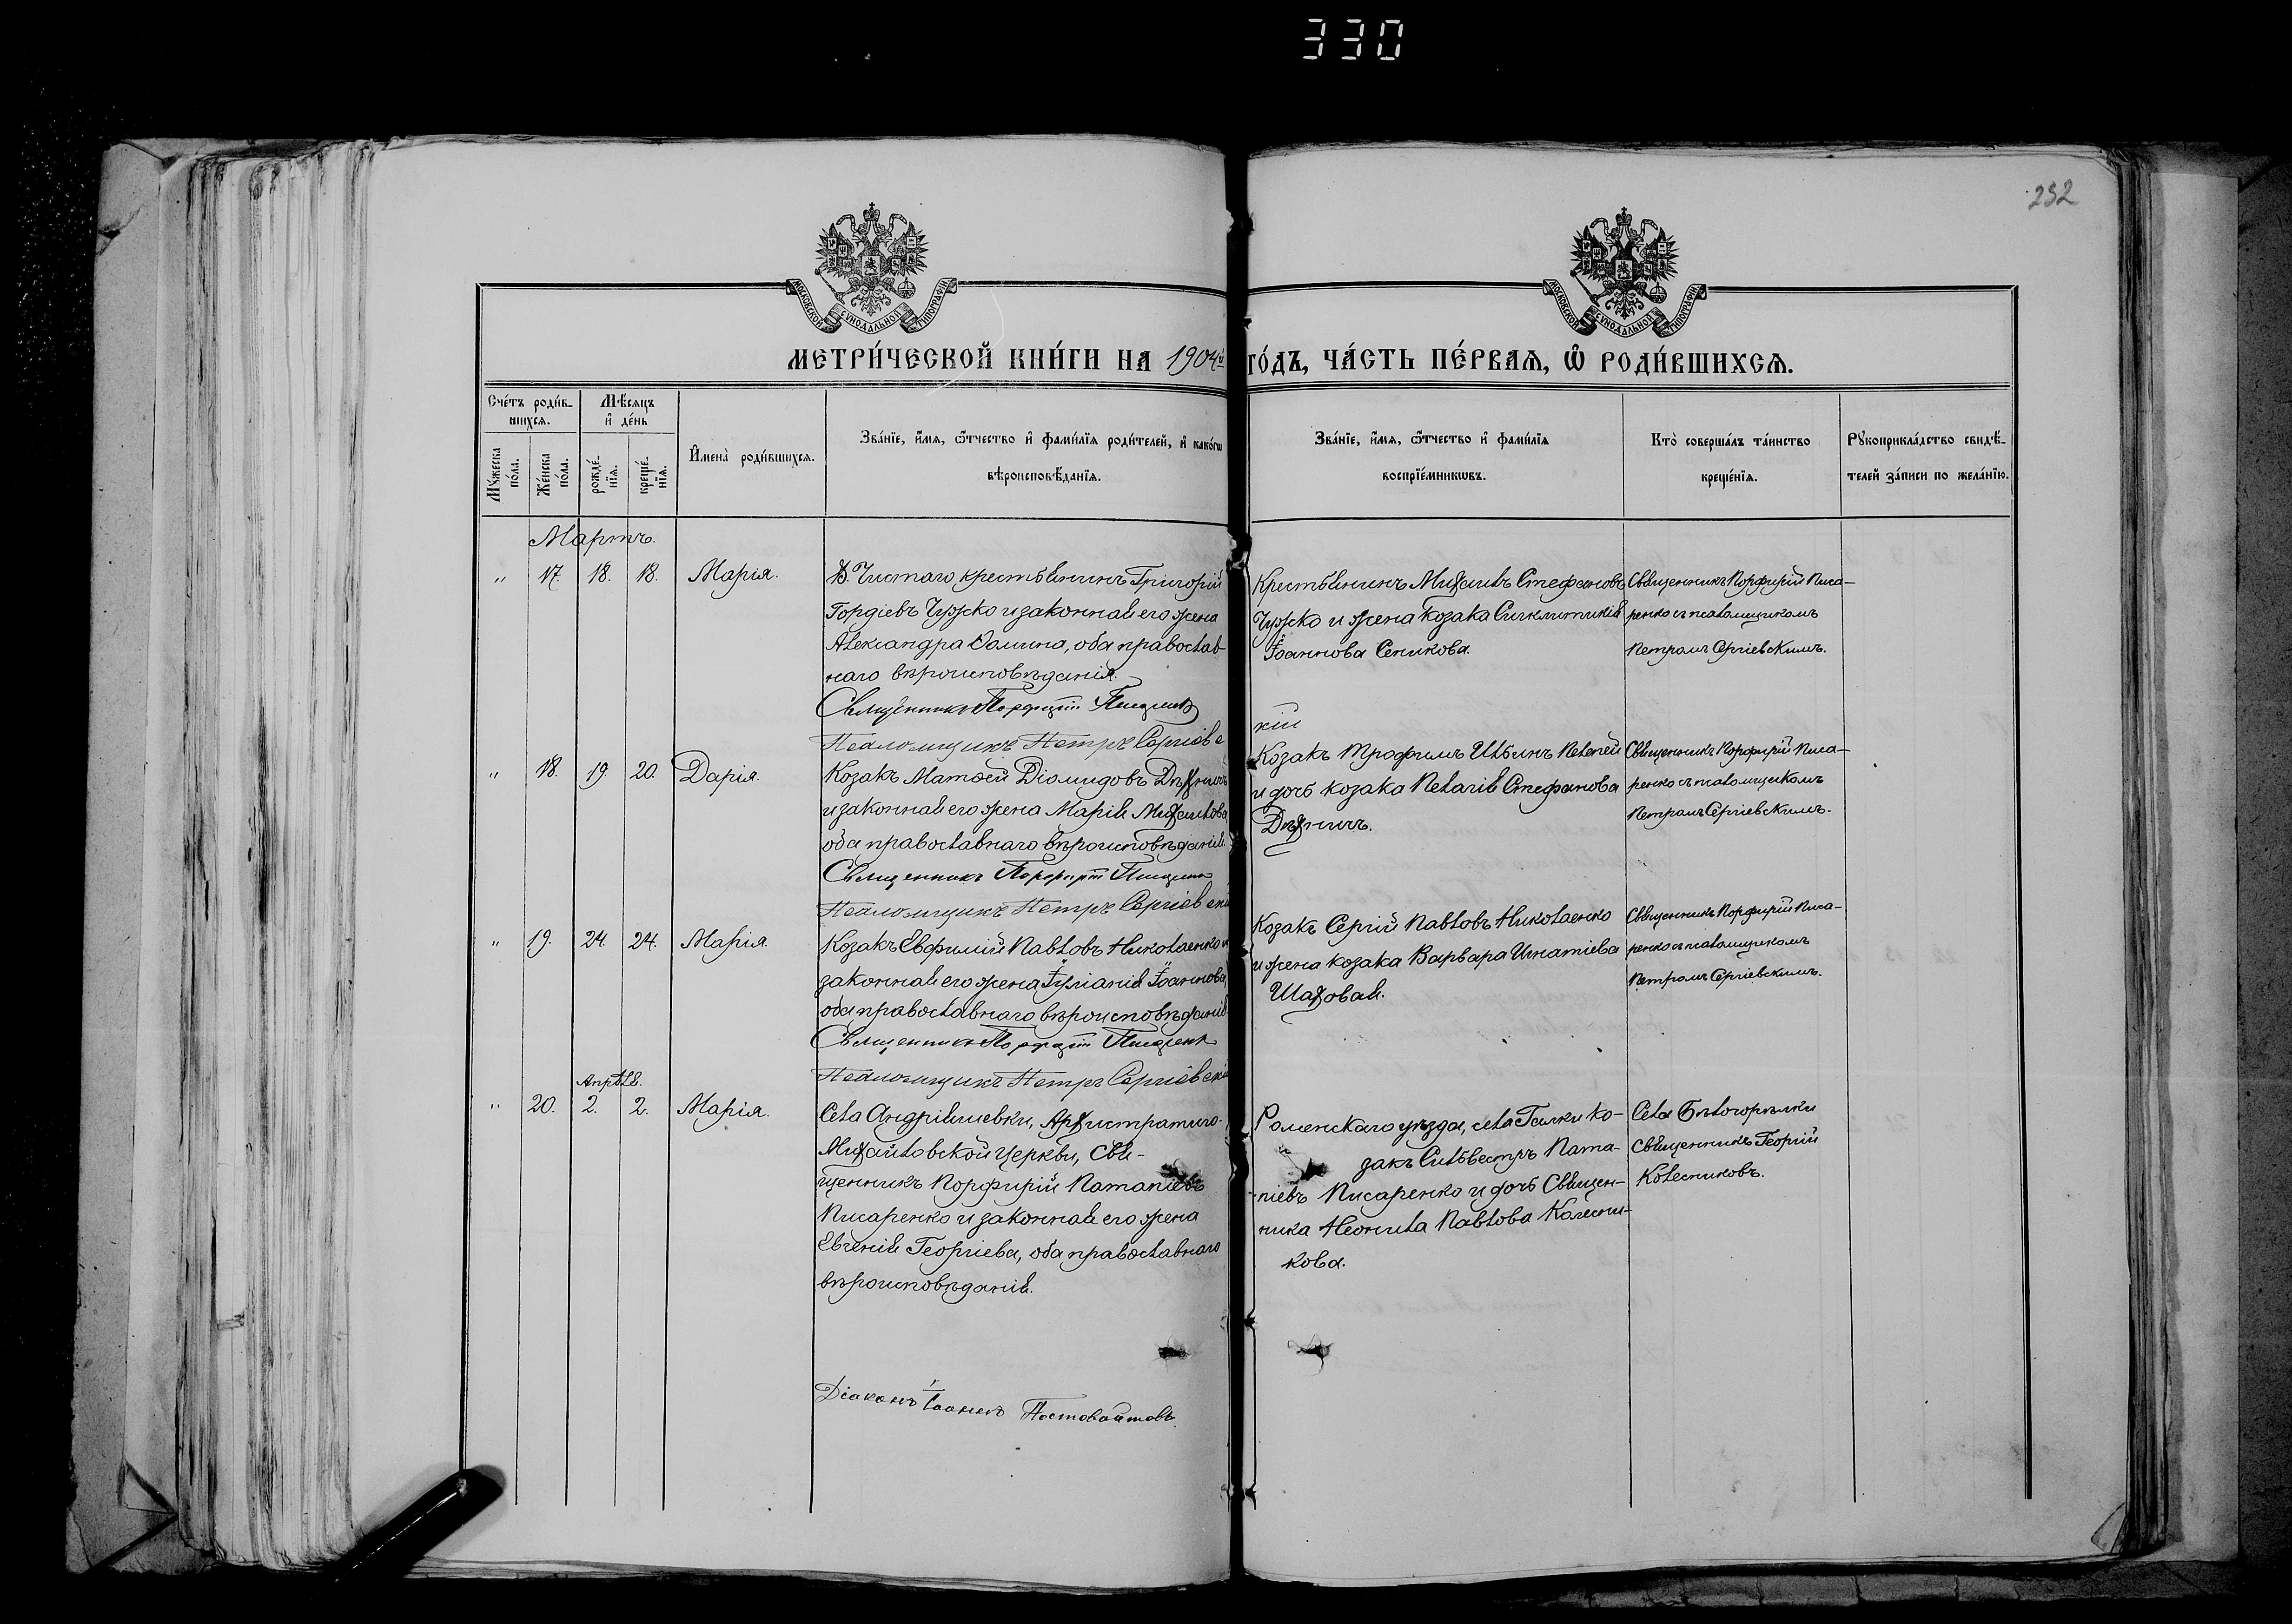 330
232
МОСКОВСКОЙ СУНОДАЛЬНОЙ ТИПОГРАФІИ
МОСКОВСКОЙ СУНОДАЛЬНОЙ ТИПОГРАФІИ
МЕТРИ́ЧЕСКОЙ КНИ́ГИ НА 1904й
ГО́ДЪ, ЧА́СТЬ ПЕ́РВАЯ, Ѡ РОДИ́ВШИХСЯ.
Сче́тъ роди́в-
шихся.
Му́жеска по́ла.
Же́нска по́ла.
Мѣ́сяцъ
и де́нь
рожде́-
нїя.
креще́-
нїя.
И҆мена̀ роди́вшихся.
Зва́нїе, и҆́мя, ѻ҆́тчество и҆ фами́лїя роди́телей, и҆ како́гѡ
вѣроисповѣ́данїя.
Зва́нїе, и҆́мя, ѻ҆́тчество и҆ фами́лїя
воспрїе́мникѡвъ.
Кто̀ соверша́лъ та́инство
креще́нїя.
Рꙋкоприкла́дство свидѣ́-
телей за́писи по жела́нїю.
Мартъ.
" 17. 18. 18. Марія.
Д. Чистаго, крестьянинъ Григорій
Гордіевъ Чужко и законная его жена
Александра Фомина, оба православ-
наго вѣроисповѣданія.
Священникъ Порфирій Писаренко
Псаломщикъ Петръ Сергіевс
Крестьянинъ Михаилъ Стефановъ
Чужко и жена козака Синклитикія
Іоаннова Сеникова.
кій
Священникъ Порфирій Писа-
ренко съ псаломщикомъ
Петромъ Сергіевскимъ.
" 18. 19. 20. Дарія.
Козакъ Матѳей Діомидовъ Дѣхничъ
и законная его жена Марія Михаилова
оба православнаго вѣроисповѣданія.
Священникъ Порфирій Писаренко
Псаломщикъ Петръ Сергіевскій
Козакъ Трофимъ Ильинъ Пелепей
и дочь козака Пелагія Стефанова
Дѣхничъ.
Священникъ Порфирій Писа-
ренко съ псаломщикомъ
Петромъ Сергіевскимъ.
" 19. 24. 24. Марія.
Козакъ Евфимій Павловъ Николаенко и
законная его жена Іуліанія Іоаннова,
оба православнаго вѣроисповѣданія
Священникъ Порфирій Писаренко
Псаломщикъ Петръ Сергіевскій
Козакъ Сергій Павловъ Николаенко
и жена козака Варвара Игнатіева
Шаховая.
Священникъ Порфирій Писа-
ренко съ псаломщикомъ
Петромъ Сергіевскимъ.
Апрѣль.
" 20. 2. 2. Марія.
Села Андріяшевки, Архистратиго-
Михайловской церкви, Свя-
щенникъ Порфирій Патапіевъ
Писаренко и законная его жена
Евгенія Георгіева, оба православнаго
вѣроисповѣданія.
Роменскаго уѣзда, села Галки ко-
закъ Сильвестръ Пата-
піевъ Писаренко и дочь Священ-
ника Неонила Павлова Колесни-
кова.
Села Бѣлогорѣлки
Священникъ Георгій
Колесниковъ.
Діаконъ Іоаннъ Постовойтовъ.